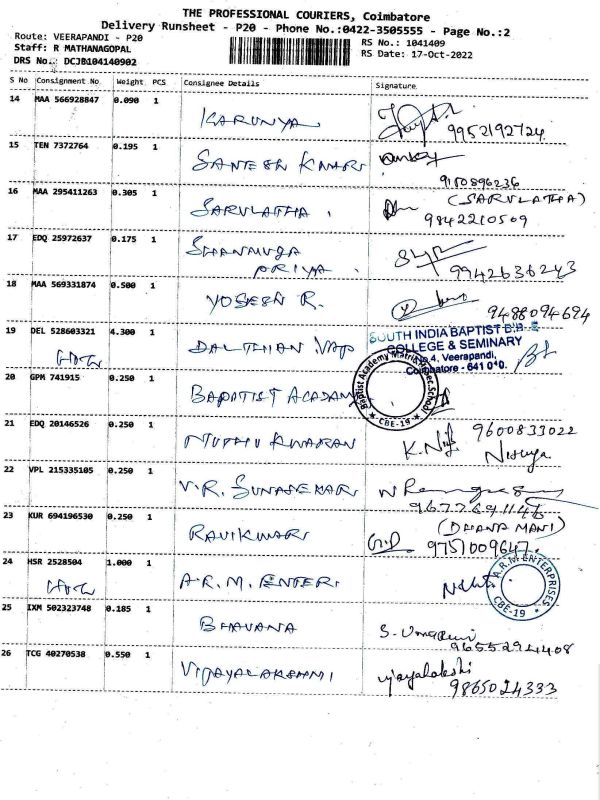 THE PROFESSIONAL COURIERS, Coimbatore
Delivery Runsheet - P20 - Phone No.:0422-3505555 - Page No.:2
Route: VEERAPANDI - P20
RS No.: 1041409
Staff: R MATHANAGOPAL
RS Date: 17-Oct-2022
DRS No.: DCJB104140902
S No Consignment No. Weight PCS Consignee Details Signature
14 MAA 566928847 0.090 1 KARUNYA
9952192724
15 TEN 7372764 0.195 1
9180896236
16 MAA 295411263 0.305 1 SARULATHA (SARULATHA)
9842210509
17 EDQ 25972637 0.175 1 SHANMUGA
PRIYA 9942636243
18 MAA 569331874 0.500 1 YOGESH R.
9488094694
19 DEL 528603321 4.300 1
SOUTH INDIA BAPTIST BIBLE
COLLEGE & SEMINARY
No.4, Veerapandi,
Coimbatore - 641 0
20 GPM 741915 0.250 1 BAPTIST ACADAM
Baptist Academy Matric. Hr. Sec. School
* CBE-19 *
21 EDQ 20146526 0.250 1 MUTHU KUMARAN
9600833022
22 VPL 215335105 0.250 1 V.R.
23 KUR 694196530 0.250 1 RAVIKUMAR (DHANA MANI)
9751009647.
24 HSR 2528504 1.000 1 A.R.M. ENTER
A.R.M ENTERPRISES
* CBE-19 *
25 IXM 502323748 0.185 1 BHAVANA S. Umadevi
9655294408
26 TCG 40270538 0.550 1 VIJAYALAKSHMI vijayalakshi
9865024333